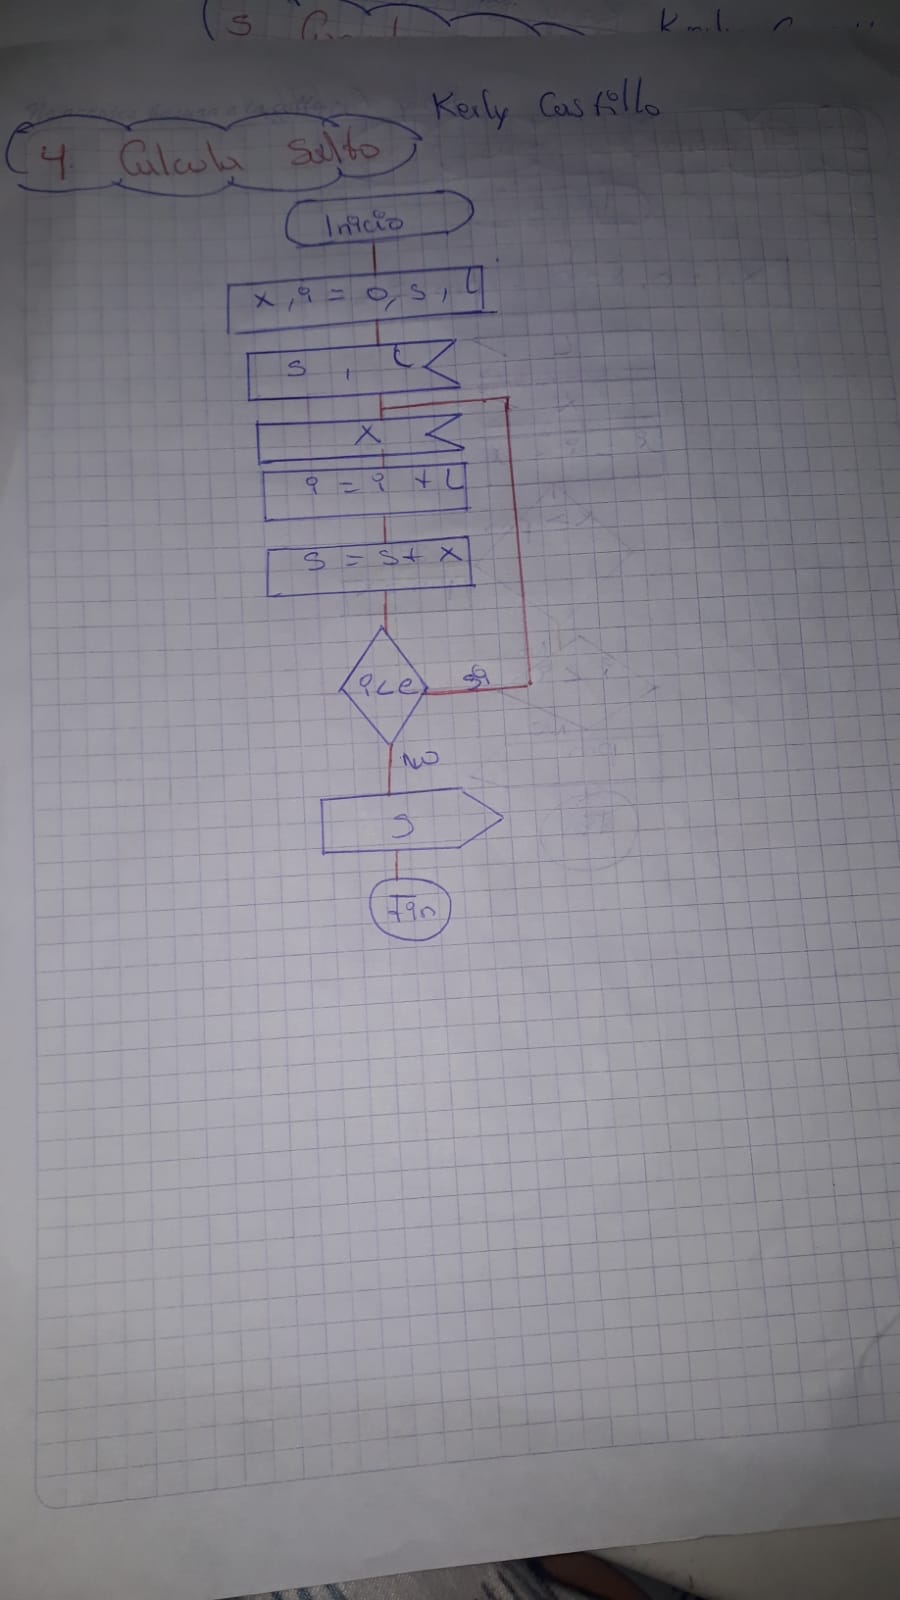 Kerly Castillo
4. Calcula Salto
Inicio
x, i = 0, s, L
s, L
x
i = i + L
s = s + x
i < e
si
NO
s
Fin